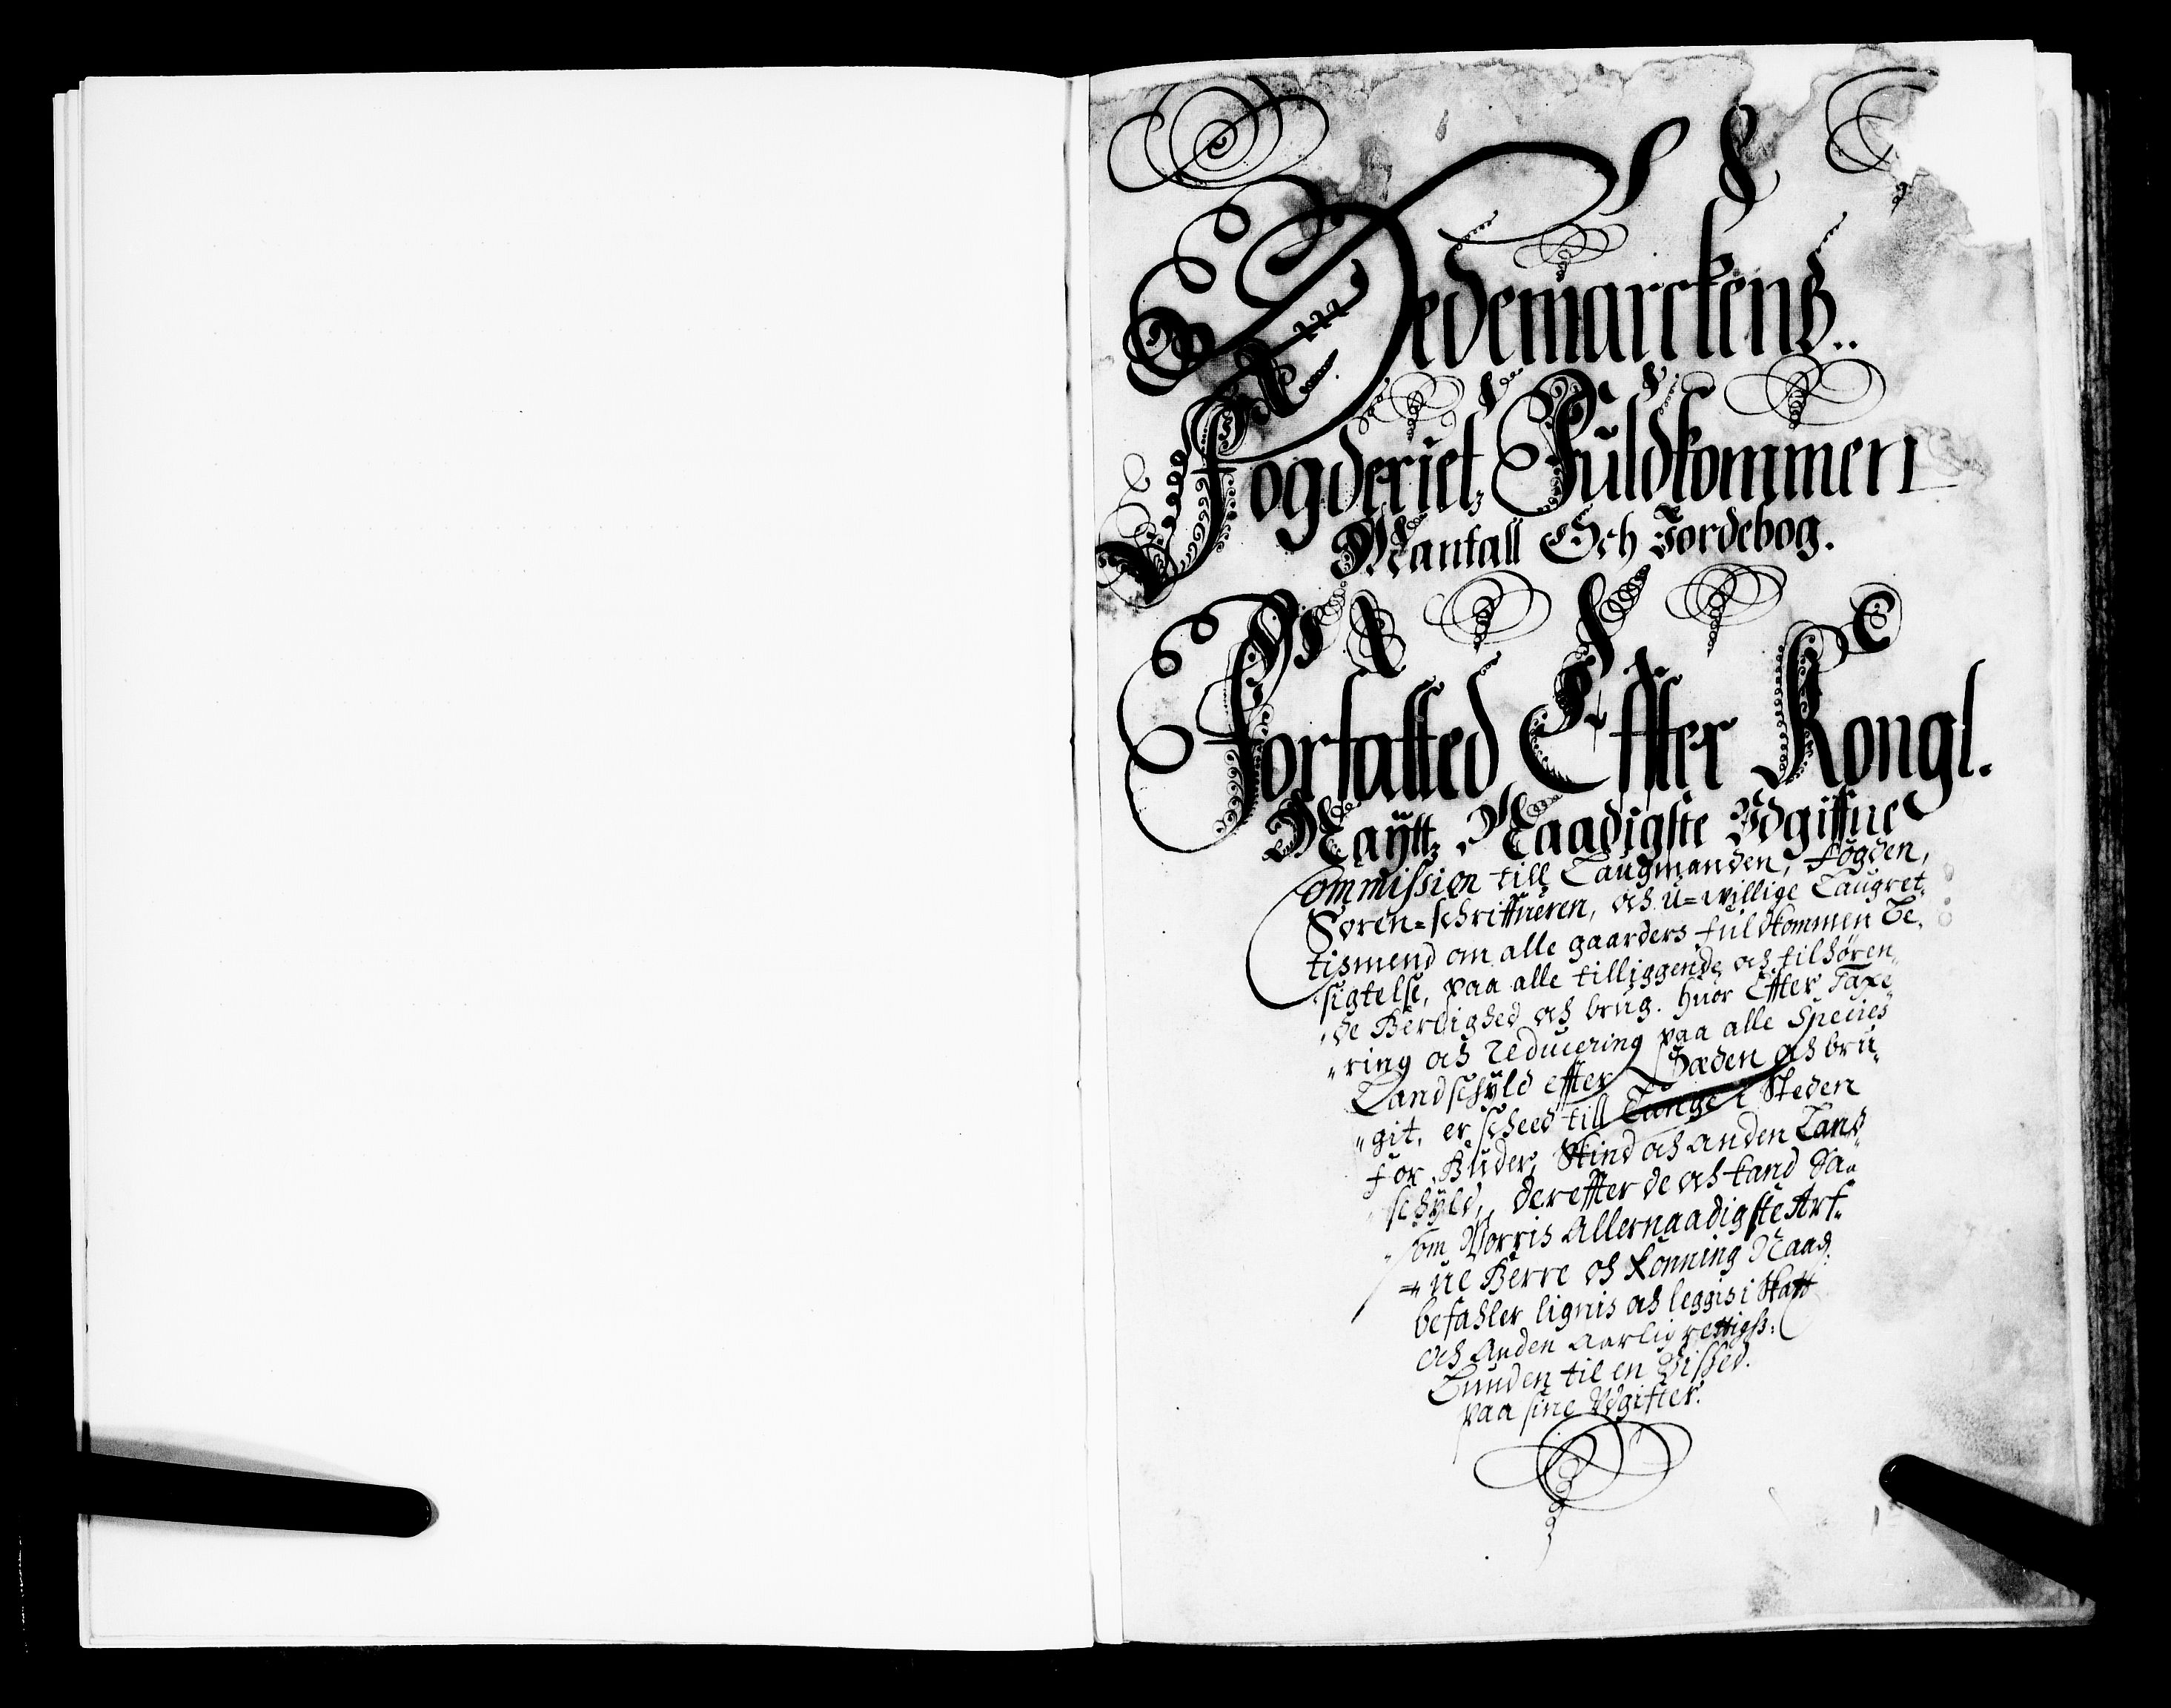 Hedemarckens..
Fogderiet, Fuldkommen
Mantall Och Jordebog.
Forfatted Effter Kongl.
Maÿtt, Naadigste Vdgiffne
Commission till Laugmanden, Fogden,
Soren=schriffueren, och u=willige Laugret,
tismend om alle gaarders fuldkommen Be,
sigtelse, paa alle tilliggende och tilhören,
de Herlighed och brug. huor Effter Taxe
"ring och reducering paa alle Species
Landschÿld effter Sæden och bru"
"git, er scheed till Tunge i Steden
for Huder, Skind och anden Land,
schÿld, dereffter de och kand Sa"
som Vorris Allernaadigste Arf=
=ue Herre och Konning Naad.
befahler lignis och leggis i Skatt
och Anden Aarlig rettigh:
Bunden til en Vished.
paa sine Vdgifter.